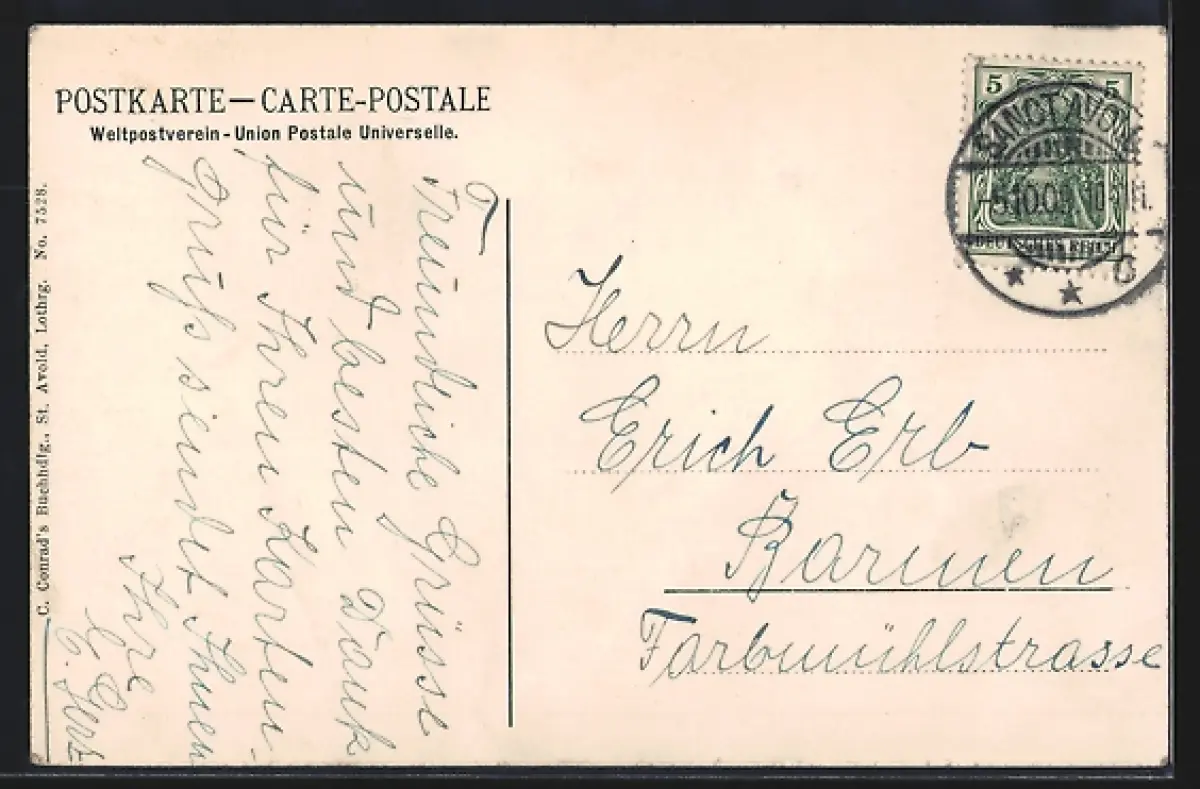 POSTKARTE—CARTE-POSTALE
Weltpostverein - Union Postale Universelle.
C. Conrad's Buchhdlg., St. Avold, Lothrg. No. 7528.
Freundliche Grüsse
und besten Dank
für Ihren Karten-
gruss sendet Ihnen
Ihre
5 5
DEUTSCHES REICH
SANCT AVOLD
Herrn
Erich Erb
Barmen
Farbmühlstrasse